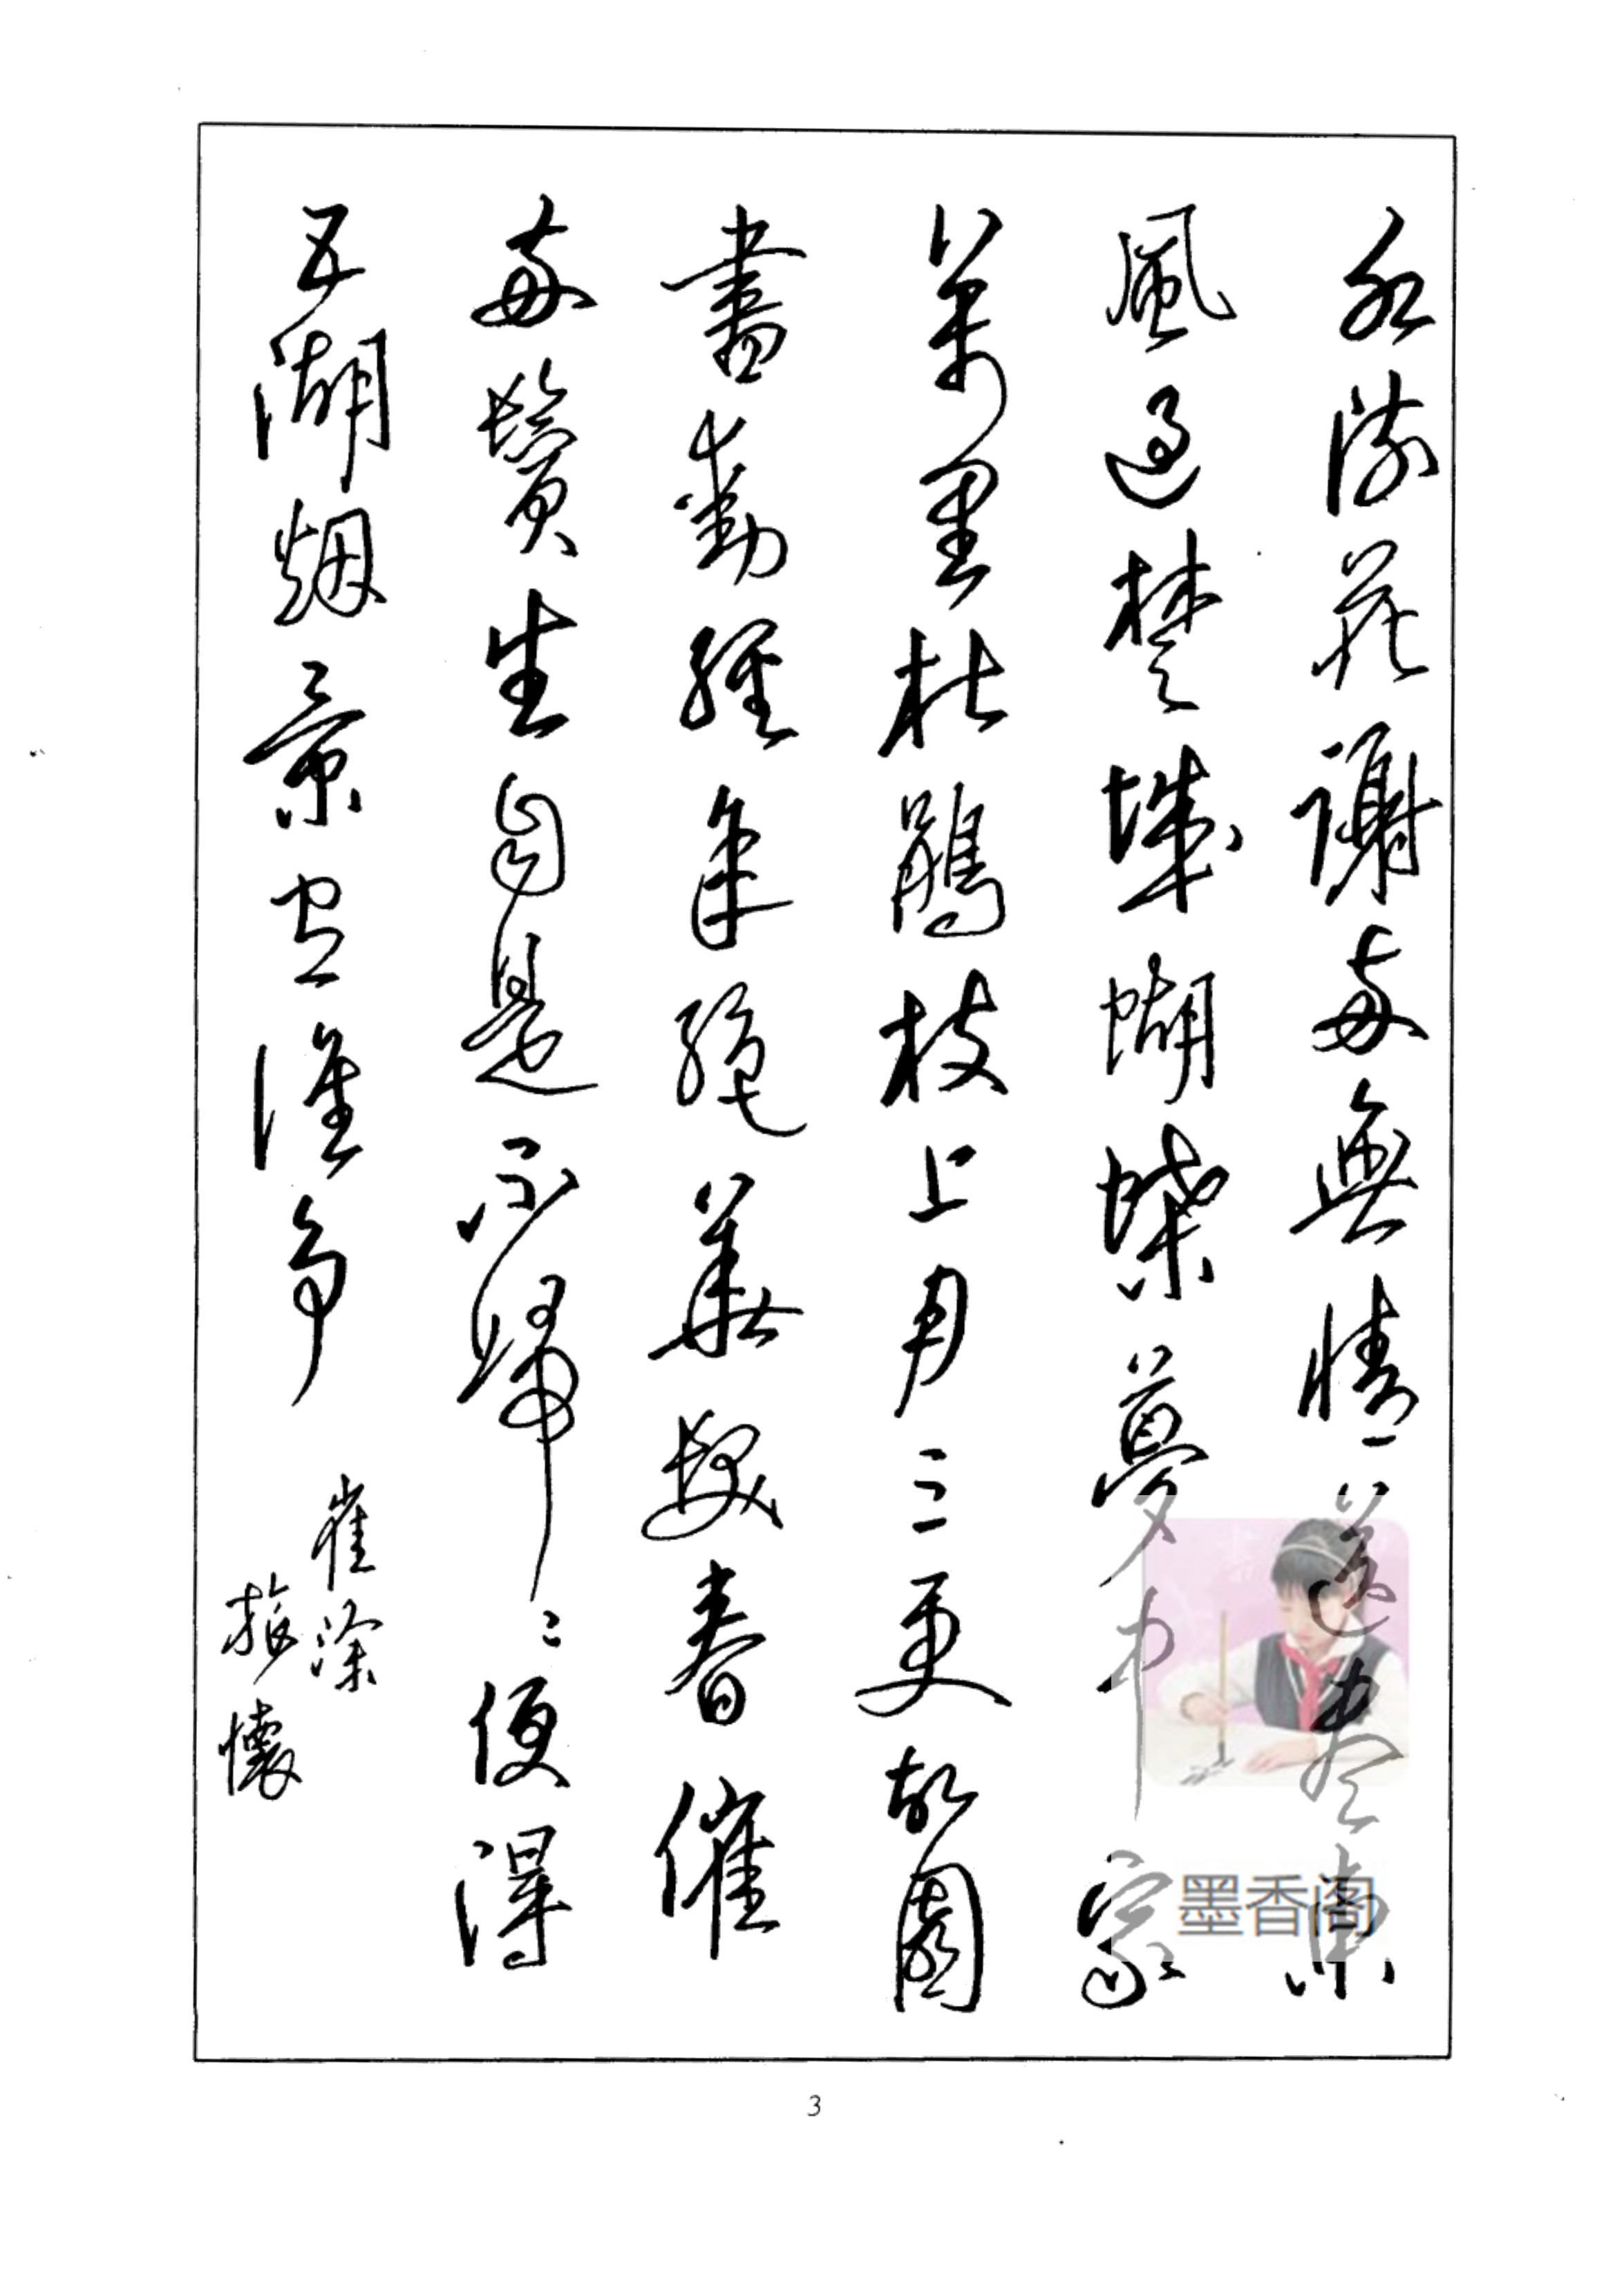 水流花謝兩無情送盡東
風過楚城蝴蝶夢中家
萬里杜鵑枝上月三更故園
書動經年絕華髮春催
兩鬢生自是不歸〻便得
五湖烟景有誰爭
崔涂
旅懷
墨香阁
3